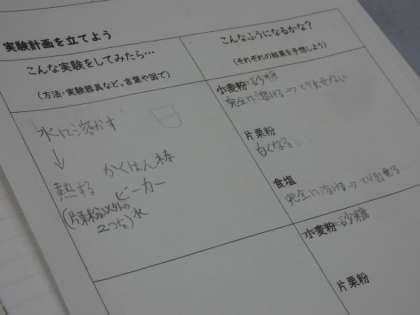 実験計画を立てよう
こんな実験をしてみたら…
(方法・実験器具など。言葉や図で)
水に溶かす
↓
熱する
かくはん棒
ビーカー
(片栗粉以外の
2つを) 水
こんなふうになるかな？
(それぞれの結果を予想しよう)
小麦粉 砂糖
完全に溶けきってりませない
片栗粉
白くなる。
食塩
完全に溶けきって
小麦粉 砂糖
片栗粉